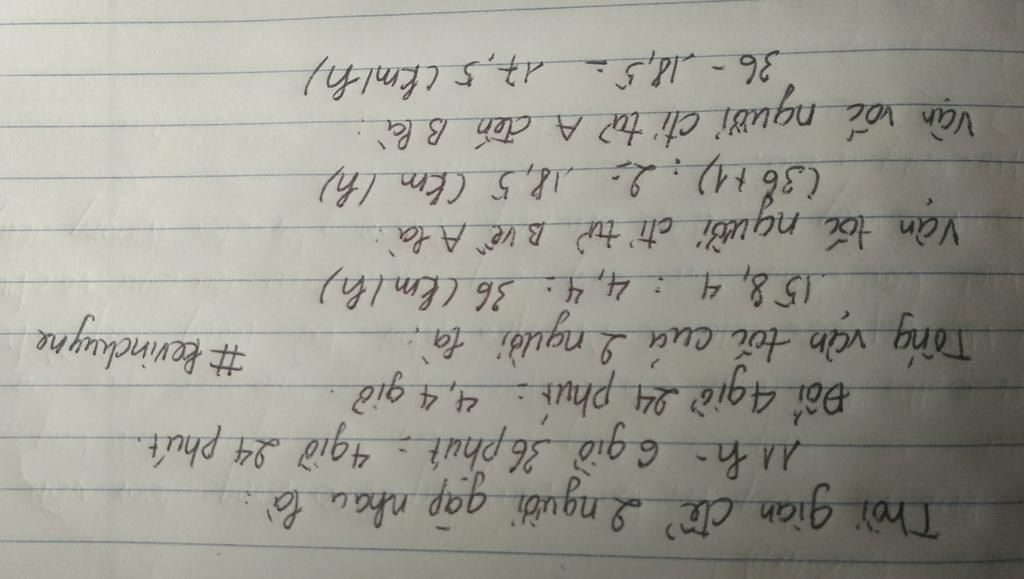 Thời gian để 2 người gặp nhau là:
11h - 6 giờ 36 phút = 4 giờ 24 phút.
Đổi 4 giờ 24 phút = 4,4 giờ.
Tổng vận tốc của 2 người là: #kevinchuyne
158,4 : 4,4 = 36 (km/h)
Vận tốc người đi từ B về A là:
(36+1) : 2 = 18,5 (km/h)
Vận tốc người đi từ A đến B là:
36 - 18,5 = 17,5 (km/h)